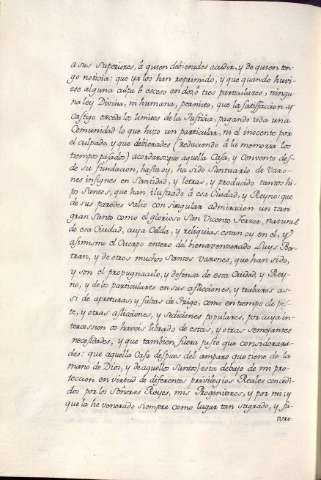 a sus Superiores, à quien debierades acudir, y de quien ten-
go noticia: que ya los han reprimido, y que quando huvi-
ese alguna culpa ò exceso en dos, ò tres particulares, ningu-
na ley Divina, ni humana, permite, que la satisfaccion y
castigo exceda los limites de la Justicia, pagando toda una
Comunidad lo que hizo un particular, ni el inocente por
el culpado, y que debierades (reduciendo à la memoria los
tiempos pasados) acordaros, que aquella Casa, y Convento des-
de su fundacion, hasta oy, ha sido Santuario de Varo-
nes insignes en Santidad, y letras, y producido tantos hi-
jos Santos, que han ilustrado à esa Ciudad, y Reyno: que
de sus paredes salio con singular admiracion un tan
gran Santo como el glorioso San Vicente Ferrer, natural
de esa Ciudad, cuya Celda, y reliquias estan oy en el, y
asimismo el Cuerpo entero del bienaventurado Luis Ber-
tran, y de otros muchos Santos Varones, que han sido,
y son el propugnaculo, y defensa de esta Ciudad, y Rey-
no, y de los particulares en sus aflicciones, y trabajos asi
de aperturas y faltas de trigo, como en tiempo de pes-
te, y otras aflicciones, y sediciones populares, por cuya in-
tercession os haveis librado de estas, y otras semejantes
necesidades, y que tambien fuera justo que considerara-
des: que aquella Casa despues del amparo que tiene de la
mano de Dios, y de aquellos Santos, esta debajo de mi pro-
teccion en virtud de diferentes privilegios Reales concedi-
dos por los Señores Reyes, mis Progenitores, y por mi; y
que la he venerado siempre como lugar tan sagrado, y fa-